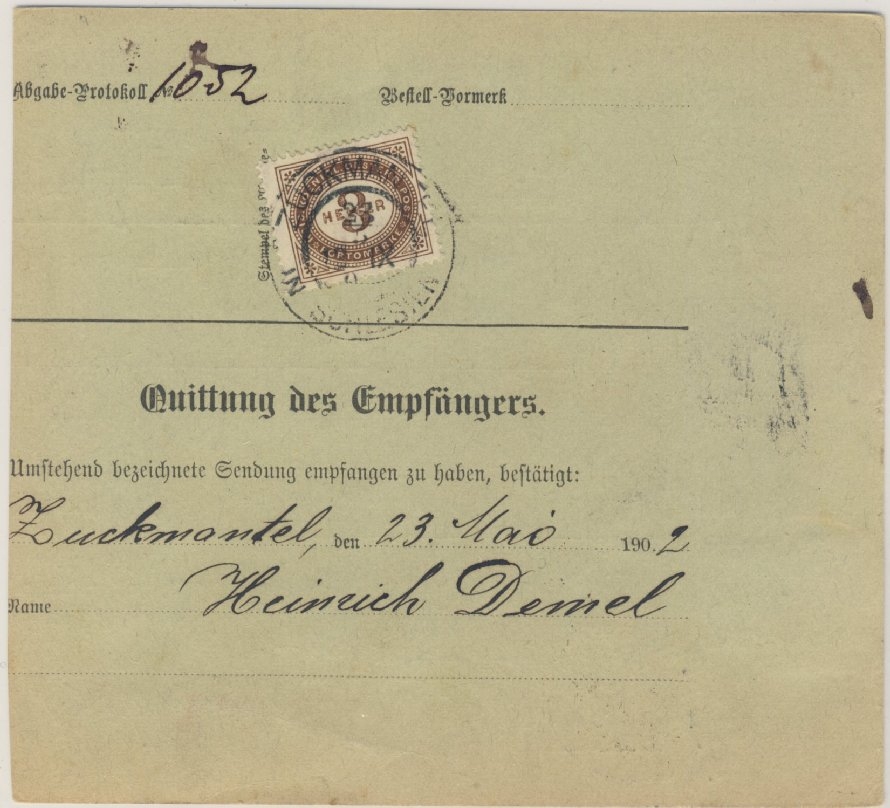 Abgabe-Protokoll № 1052
Bestell-Vormerk
Stempel des
3
HELLER
PORTOMARKE
ZUCKMANTEL
IN
SCHLESIEN
Quittung des Empfängers.
Umstehend bezeichnete Sendung empfangen zu haben, bestätigt:
Zuckmantel, den 23. Mai 1902
Name Heinrich Demel